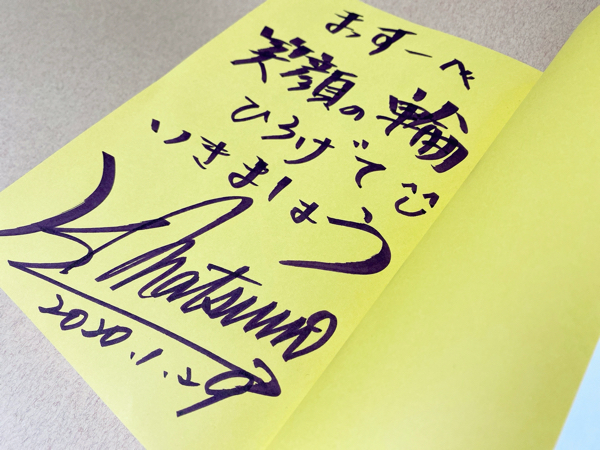 まっすーへ
笑顔の輪
ひろげて
いきましょう
K Matsuno
2020.1.29